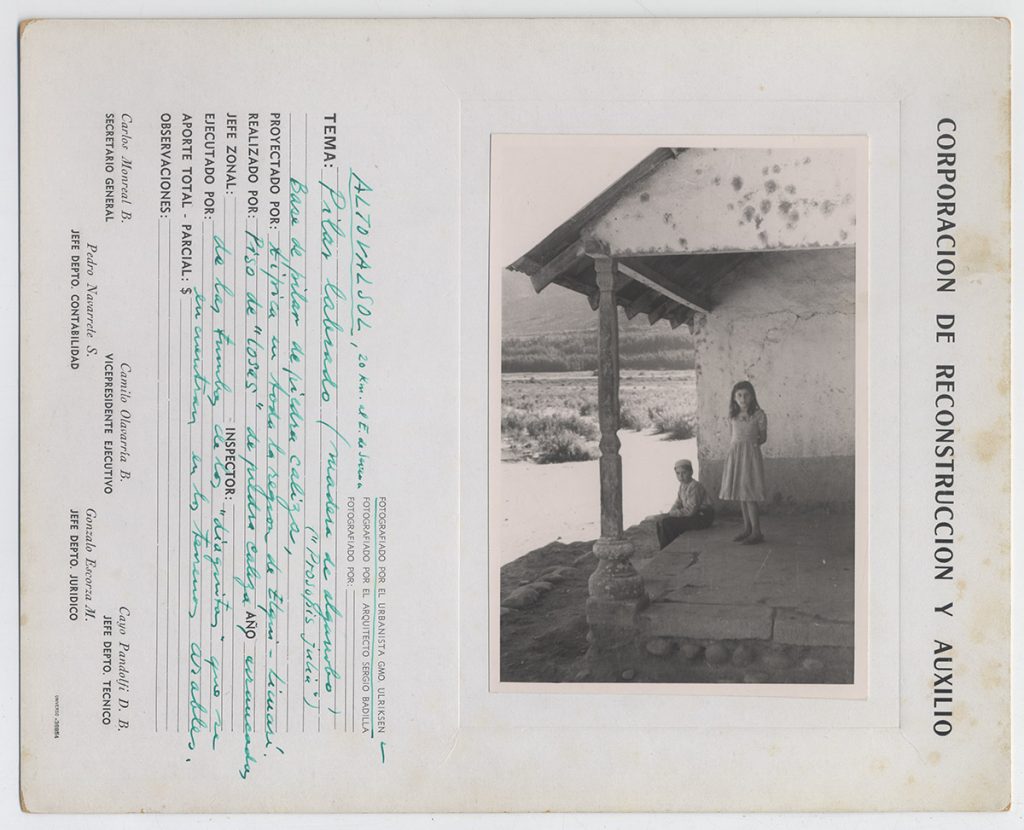 CORPORACION DE RECONSTRUCCION Y AUXILIO
FOTOGRAFIADO POR EL URBANISTA GMO ULRIKSEN
FOTOGRAFIADO POR EL ARQUITECTO SERGIO BADILLA
FOTOGRAFIADO POR:
ALTOVALSOL, 20 Km. al E. de Serena
TEMA: Pilar labrado (madera de algarrobo)
("Prosopis julia")
Base de pilar de piedra caliza,
PROYECTADO POR: típica en toda la region de Elqui-Limarí.
REALIZADO POR: Piso de "losas" de piedra caliza AÑO arrancadas
JEFE ZONAL: INSPECTOR:
EJECUTADO POR: de las tumbas de los "diaguitas" que se
APORTE TOTAL - PARCIAL: $ encuentran en los terrenos arables.
OBSERVACIONES:
Carlos Monreal B.
SECRETARIO GENERAL
Camilo Olavarría B.
VICEPRESIDENTE EJECUTIVO
Cayo Pandolfi D. B.
JEFE DEPTO. TECNICO
Pedro Navarrete S.
JEFE DEPTO. CONTABILIDAD
Gonzalo Escorza M.
JEFE DEPTO. JURIDICO